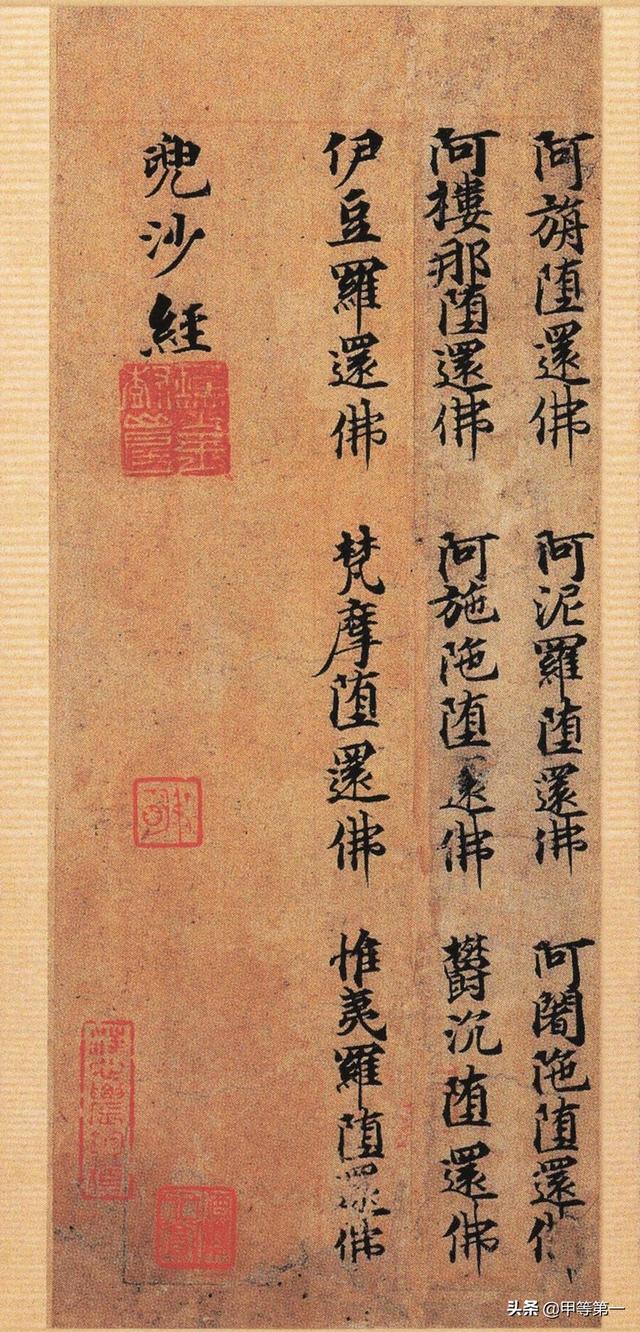 阿旃堕還佛 阿泥羅堕還佛 阿闍陁堕還佛
阿樓那堕還佛 阿施陁堕還佛 欝沉堕還佛
伊豆羅還佛 梵摩堕還佛 惟芰羅堕還佛
兜沙經
头条 @甲等第一